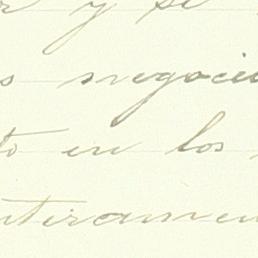 y si
negocio
en los
enteramen